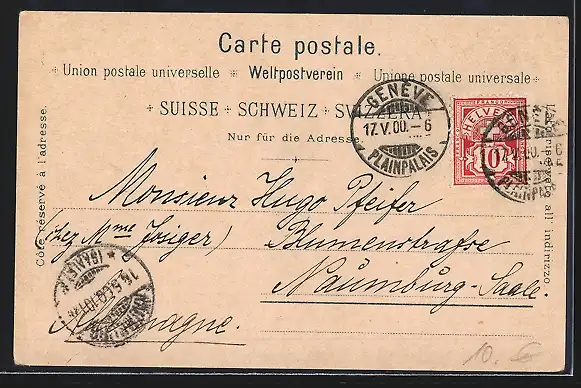 Carte postale.
Union postale universelle Weltpostverein Unione postale universale
SUISSE SCHWEIZ SVIZZERA
Nur für die Adresse.
Côté réservé à l'adresse.
GENÈVE
17.V.00.-6
PLAINPALAIS
FRANCO
HELVETIA
10
GENÈVE
PLAINPALAIS
Monsieur Hugo Pfeifer
(chez Mme
Blumenstrasse
Naumburg-Saale.
Allemagne.
(SAALE)
10.-€